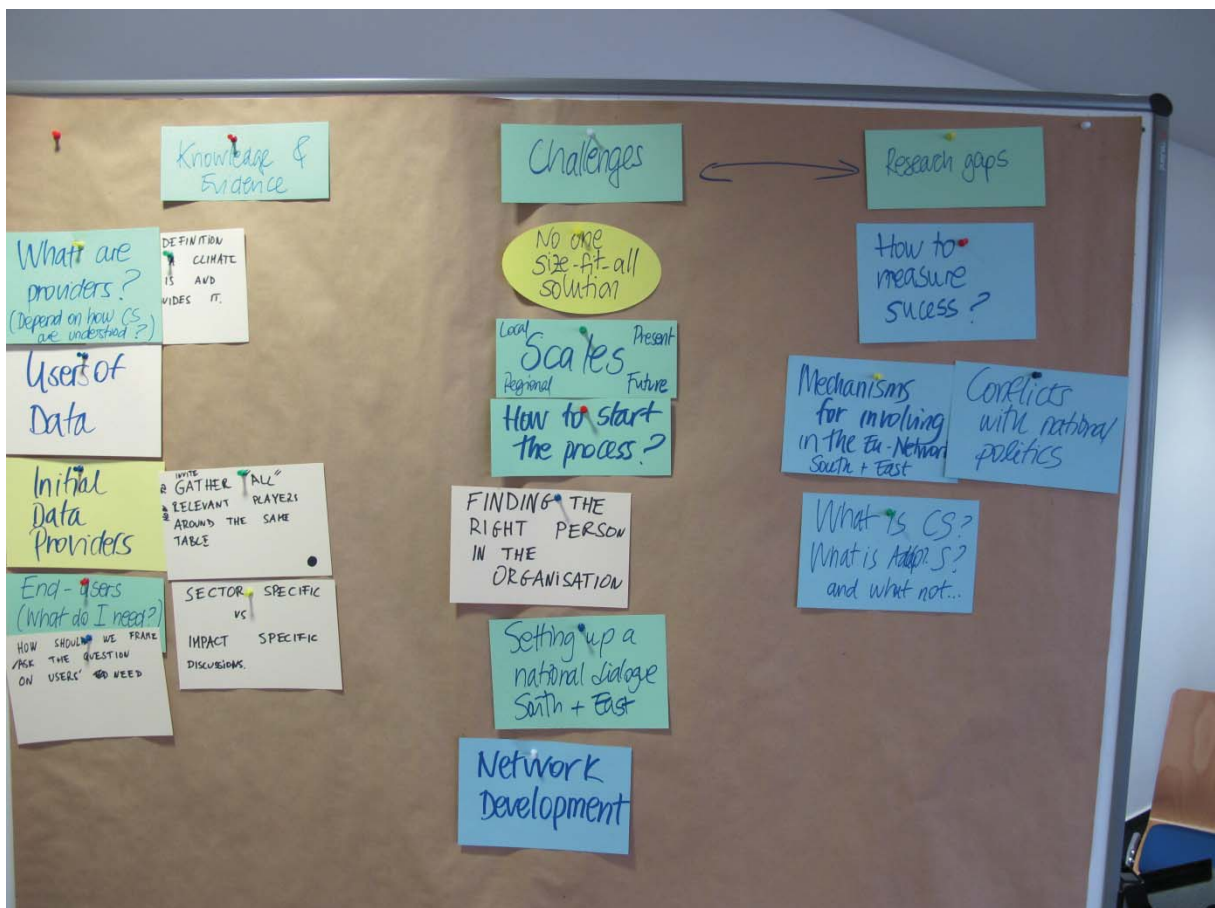 Knowledge &
Evidence
What are
providers?
(Depend on how CS
are understood?)
DEFINITION
CLIMATE
IS AND
VIDES IT.
Users of
Data
Initial
Data
Providers
INVITE
GATHER "ALL"
RELEVANT PLAYERS
AROUND THE SAME
TABLE
End-users
(What do I need?)
HOW SHOULD WE FRAME
/ASK THE QUESTION
ON USERS' NEED
SECTOR SPECIFIC
VS
IMPACT SPECIFIC
DISCUSSIONS.
Challenges
No one
size-fit-all
solution
Local Present
Scales
Regional Future
How to start
the process?
FINDING THE
RIGHT PERSON
IN THE
ORGANISATION
Setting up a
national dialogue
South + East
Network
Development
Research gaps
How to
measure
sucess?
Mechanisms
for involving
in the Eu-Network
South + East
Conflicts
with national
politics
What is CS?
What is Adap. S?
and what not...